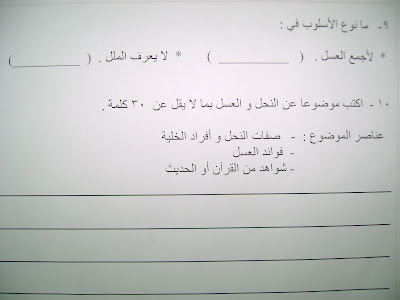 ٩- ما نوع الأسلوب في :
* لأجمع العسل . ( ____________ ) * لا يعرف الملل . ( ____________ )
١٠ - اكتب موضوعا عن النحل و العسل بما لا يقل عن ٣٠ كلمة .
عناصر الموضوع : - صفات النحل و أفراد الخلية
- فوائد العسل
- شواهد من القرآن أو الحديث